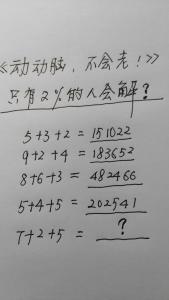 《动动脑，不会老！》
只有2%的人会解？
5+3+2=151022
9+2+4=183652
8+6+3=482466
5+4+5=202541
7+2+5=?